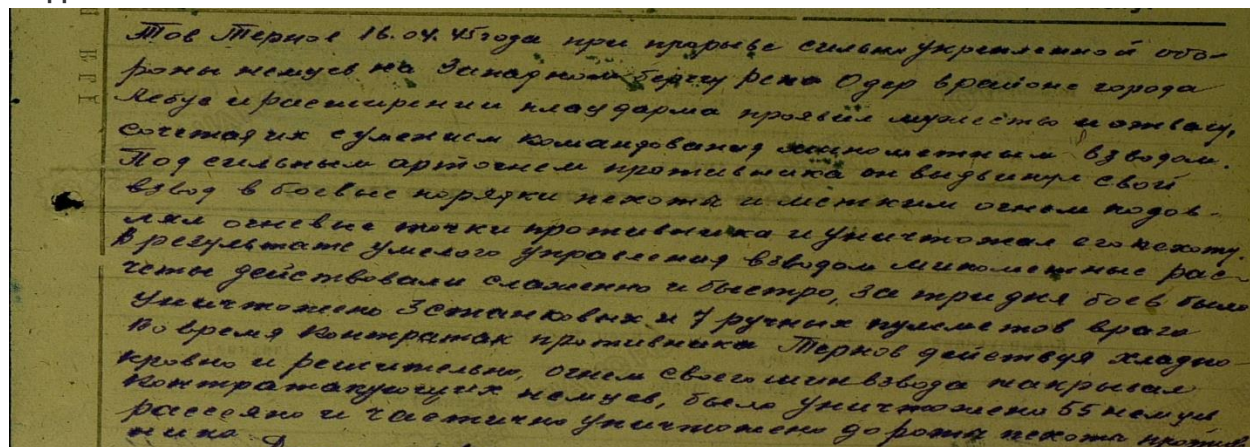 Тов Тернов 16.04.45 года при прорыве сильно укрепленной обо-
роны немцев на Западном берегу реки Одер в районе города
Лебус и расширении плацдарма проявил мужество и отвагу,
сочетая их с умением командования минометным взводом.
Под сильным артогнем противника он выдвинул свой
взвод в боевые порядки пехоты и метким огнем подов-
лял огневые точки противника и уничтожал его пехоту.
В результате умелого управления взводом минометные рас-
четы действовали слаженно и быстро, за три дня боев было
уничтожено 3 станковых и 7 ручных пулеметов врага
Во время контратак противника Тернов действуя хладно-
кровно и решительно, огнем своего минвзвода накрывал
контратакующих немцев, было уничтожено 55 немцев
рассеяно и частично уничтожено до роты пехоты против
ника.